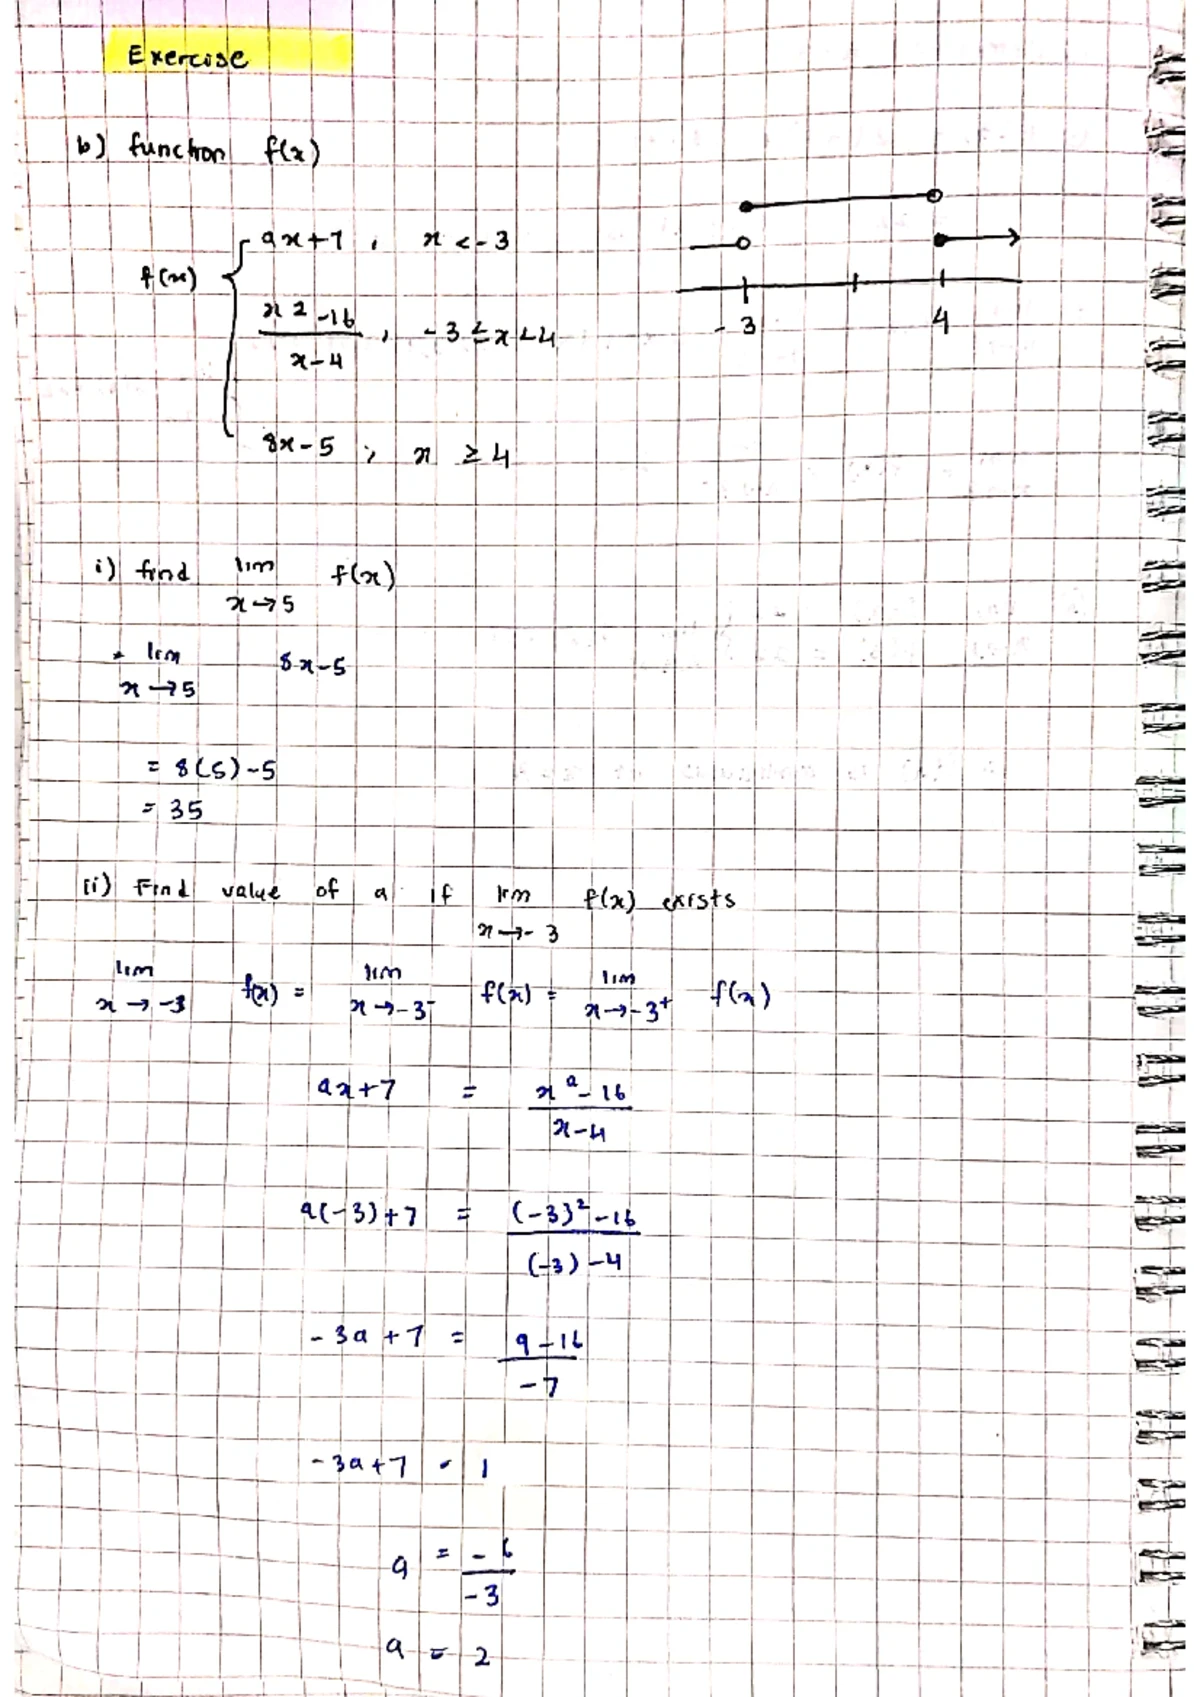 Exercise
b) function f(x)
f(x) { ax+7 , x < -3
x² -16 / x-4 , -3 ≤ x < 4
8x-5 ; x ≥ 4
-3 4
i) find lim x→5 f(x)
* lim x→5 8x-5
= 8(5)-5
= 35
ii) Find value of a if lim x→-3 f(x) exists
lim x→-3 f(x) = lim x→-3⁻ f(x) = lim x→-3⁺ f(x)
ax+7 = x²-16 / x-4
a(-3)+7 = (-3)²-16 / (-3)-4
-3a+7 = 9-16 / -7
-3a+7 = 1
a = -6 / -3
a = 2